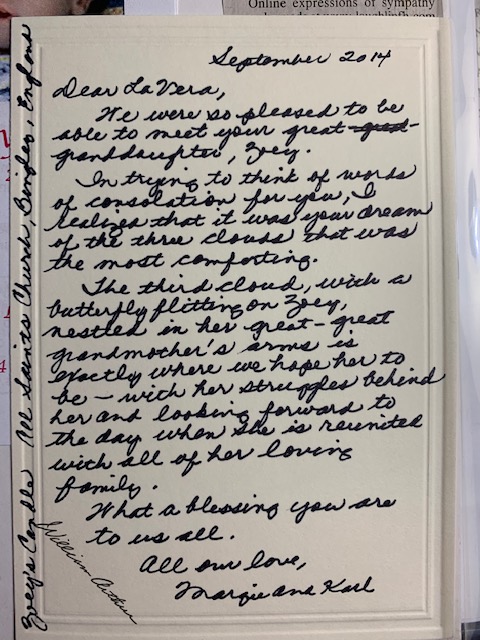 Online expressions of sympathy
September 2014
Dear LaVera,
We were so pleased to be
able to meet your great-great-
granddaughter, Zoey.
In trying to think of words
of consolation for you, I
realized that it was your dream
of the three clouds that was
the most comforting.
The third cloud, with a
butterfly flitting on Zoey,
nestled in her great-great
grandmother's arms is
exactly where we hope her to
be - with her struggles behind
her and looking forward to
the day when she is reunited
with all of her loving
family.
What a blessing you are
to us all.
All our love,
Margie and Karl
Zoey's Candle All Saints Church, England
William Arthur